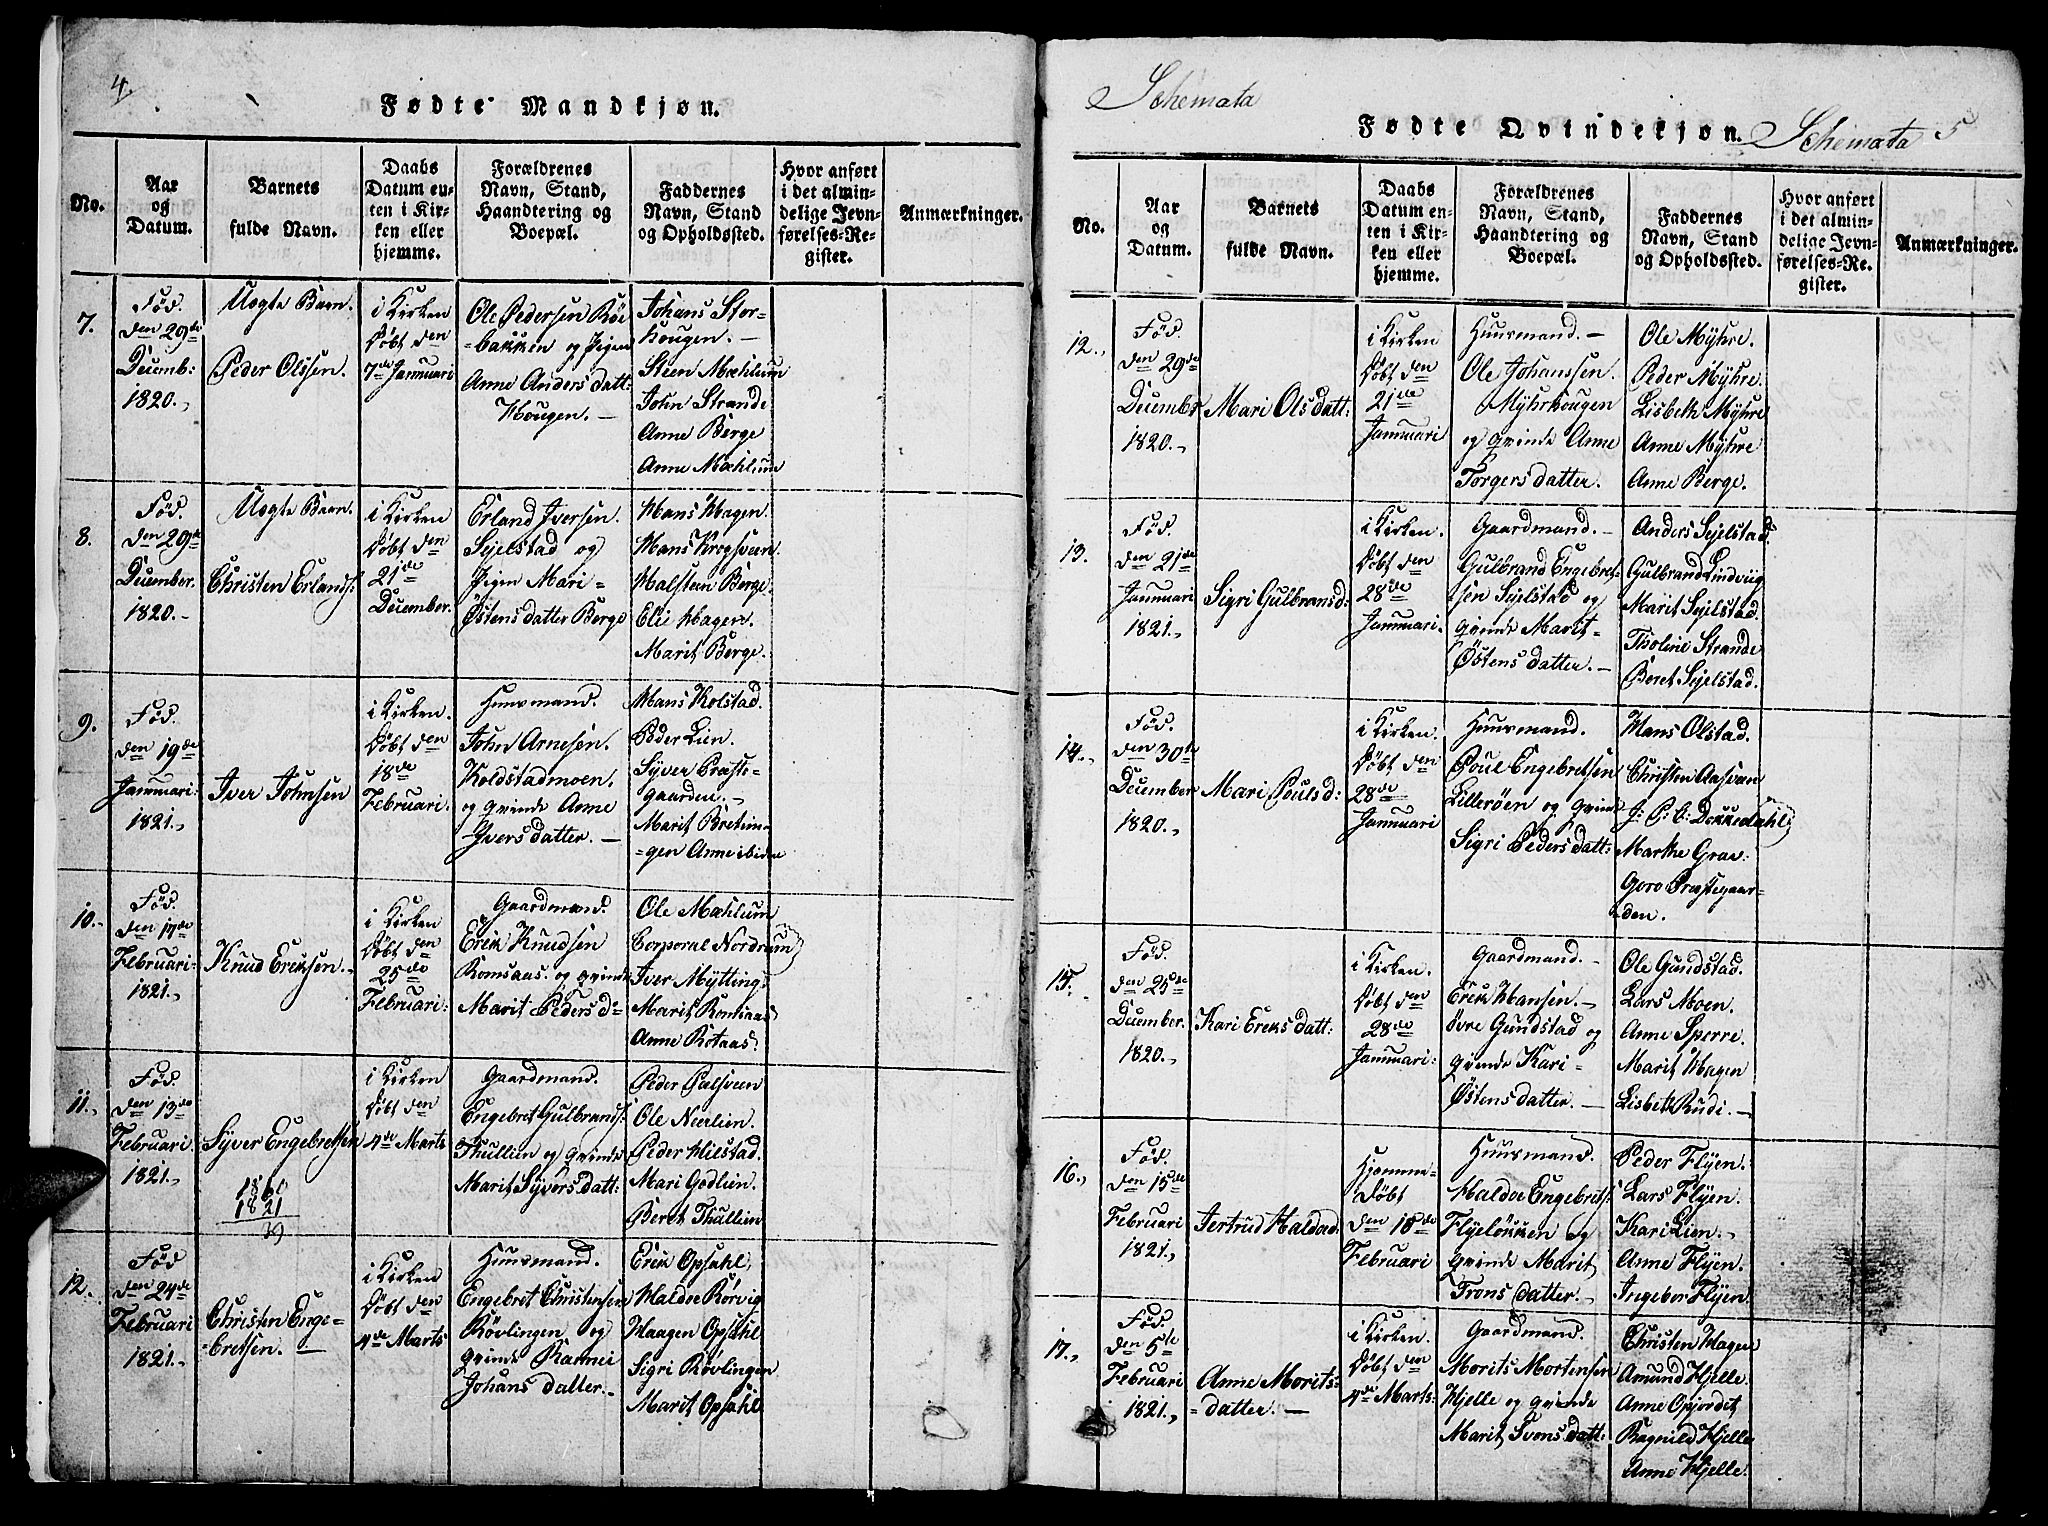 4.
Fødte Mandkjøn.
No.
Aar
og
Datum.
Barnets
fulde Navn.
Daabs
Datum en-
ten i Kir-
ken eller
hjemme.
Forældrenes
Navn, Stand,
Haandtering og
Boepæl.
Faddernes
Navn, Stand
og Opholdssted.
Hvor anført
i det almin-
delige Jevn-
førelses-Re-
gister.
Anmærkninger.
7.
Fød.
den 29de
Decemb:
1820.,
Uægte Barn.
Peder Olssen.
i Kirken
døbt den
7de Januari
Ole Pedersen Röi
=bakken og Pigen
Anne Anders datt:
Hougen. —
Johans Stor-
hougen. —
Steen Mæhlum
John Strande
Anne Berge
Anne Mæhlum
8.
Fød.
den 29de
December.
1820.—
Uægte Barn.
Christen Erlands:
i Kirken
døbt den
21de
December.
Erland Iversen.
Sejelstad og
Pigen Mari —
Østens datter Berge
Hans Hagen.
Hans Krogsveen
Halsteen Berge
Eli Hagen.
Marit Berge.
9.
Fød.
den 19de
Januari:
1821.,
Iver Johnsen
i Kirken.
døbt den
18de
Februari:
Huusmand.
John Arnesen.
Koldstadmoen.
og qvinde Anne
Ivers datter. —
Hans Kolstad.
Peder Lien.
Syver Præste-
gaarden. —
Marit Bretin-
=gen Anne ibiden
10.
Fød.
den 17de
Februari:
1821.,
Knud Eriksen.
i Kirken
døbt den
25de
Februari:
Gaardmand.
Erik Knudsen
Romsaas. og qvinde
Marit Peders d=
Ole Mæhlum
Corporal Nordrum
Iver Mytting
Marit Romsaas
Anne Rotaas.
11.,
Fød.
den 13de
Februari.
1821.,
Syver Engebretsen
1860
1821
39
i Kirken
døbt den
4de Marts
Gaardmand.
Engebret Gulbrands:
Thullien og qvinde
Marit Syvers datt:
Peder Palsveen
Ole Neerlien.
Peder Mielstad.
Mari Godlien.
Beret Thullien
12.
Fød
den 24de
Februari
1821.,
Christen Enge-
=bretsen. —
i Kirken
døbt den
4de Marts
Huusmand.
Engebret Christensen
Rövlingen og
qvinde Rannei
Johans datter.
Erik Opsahl,
Haldor Rörvig
Haagen Opsahl
Sigri Rövlingen
Marit Opsahl
Schemata
Fødte Qvindekjøn.
Schemata
5
No.
Aar
og
Datum.
Barnets
fulde Navn.
Daabs
Datum en-
ten i Kir-
ken eller
hjemme.
Forældrenes
Navn, Stand,
Haandtering og
Boepæl.
Faddernes
Navn, Stand
og Opholdssted.
Hvor anført
i det almin-
delige Jevn-
førelses-Re-
gister.
Anmærkninger.
12.,
Fød.
den 29de
December
1820.,
Mari Ols datt:
i Kirken
døbt den
21de
Januari
Huusmand. —
Ole Johanssen.
Myhrhougen
og qvinde Anne
Torgers datter.
Ole Myhre.
Peder Myhre.
Lisbeth Myhre
Anne Myhre
Anne Berge.
13.
Fød.
den 21de
Januari
1821.,
Sigri Gulbrans d:
i Kirken.
døbt den
28de
Januari.
Gaardmand. —
Gulbrand Engebret-
sen Sejelstad og
qvinde Marit —
Østens datter. —
Anders Sejelstad.
Gulbrand Lindviig
Marit Sejelstad.
Tholine Strande
Beret Sejelstad.
14.,
Fød.
den 30te
December
1820.,
Mari Pouls d:
i Kirken.
døbt den
28de
Januari
Huusmand.
Poul Engebretsen
Lilleröen og qvinde
Sigri Peders datt:
Hans Olstad.
Christen Aasveen
J: P: C: Dokkedahl
Marthe Grav:
Goro Præstegaar-
den.
15.
Fød.
den 25de
December.
1820.,
Kari Eriks datt:
i Kirken.
døbt den
28de
Januari:
Gaardmand. —
Erik Hansen. —
øvre Gundstad og
qvinde Kari —
Østens datter. —
Ole Gundstad.
Lars Moen.
Anne Sperre.
Marit Hagen
Lisbeth Rudi. —
16.,
Fød.
den 15de
Februari
1821.,
Jertrud Haldord.
hjemme-
døbt
den 18de
Februari
Huusmand.
Haldor Engebrets:
Flyeløkken og
qvinde Marit
Trons datter. —
Peder Flyen.
Lars Flyen.
Kari Lien. —
Anne Flyen.
Ingebor Flyen.
17.,
Fød.
den 5te
Februari
1821.,
Anne Morits-
=datter. —
i Kirken.
døbt den
4de Marts.
Gaardmand.
Morits Mortensen
Hjelle og qvinde
Marit Svens datt:
Christen Hagen
Amund Hjelle.
Anne Opjordet
Ragnild Hjelle
Anne Hjelle.